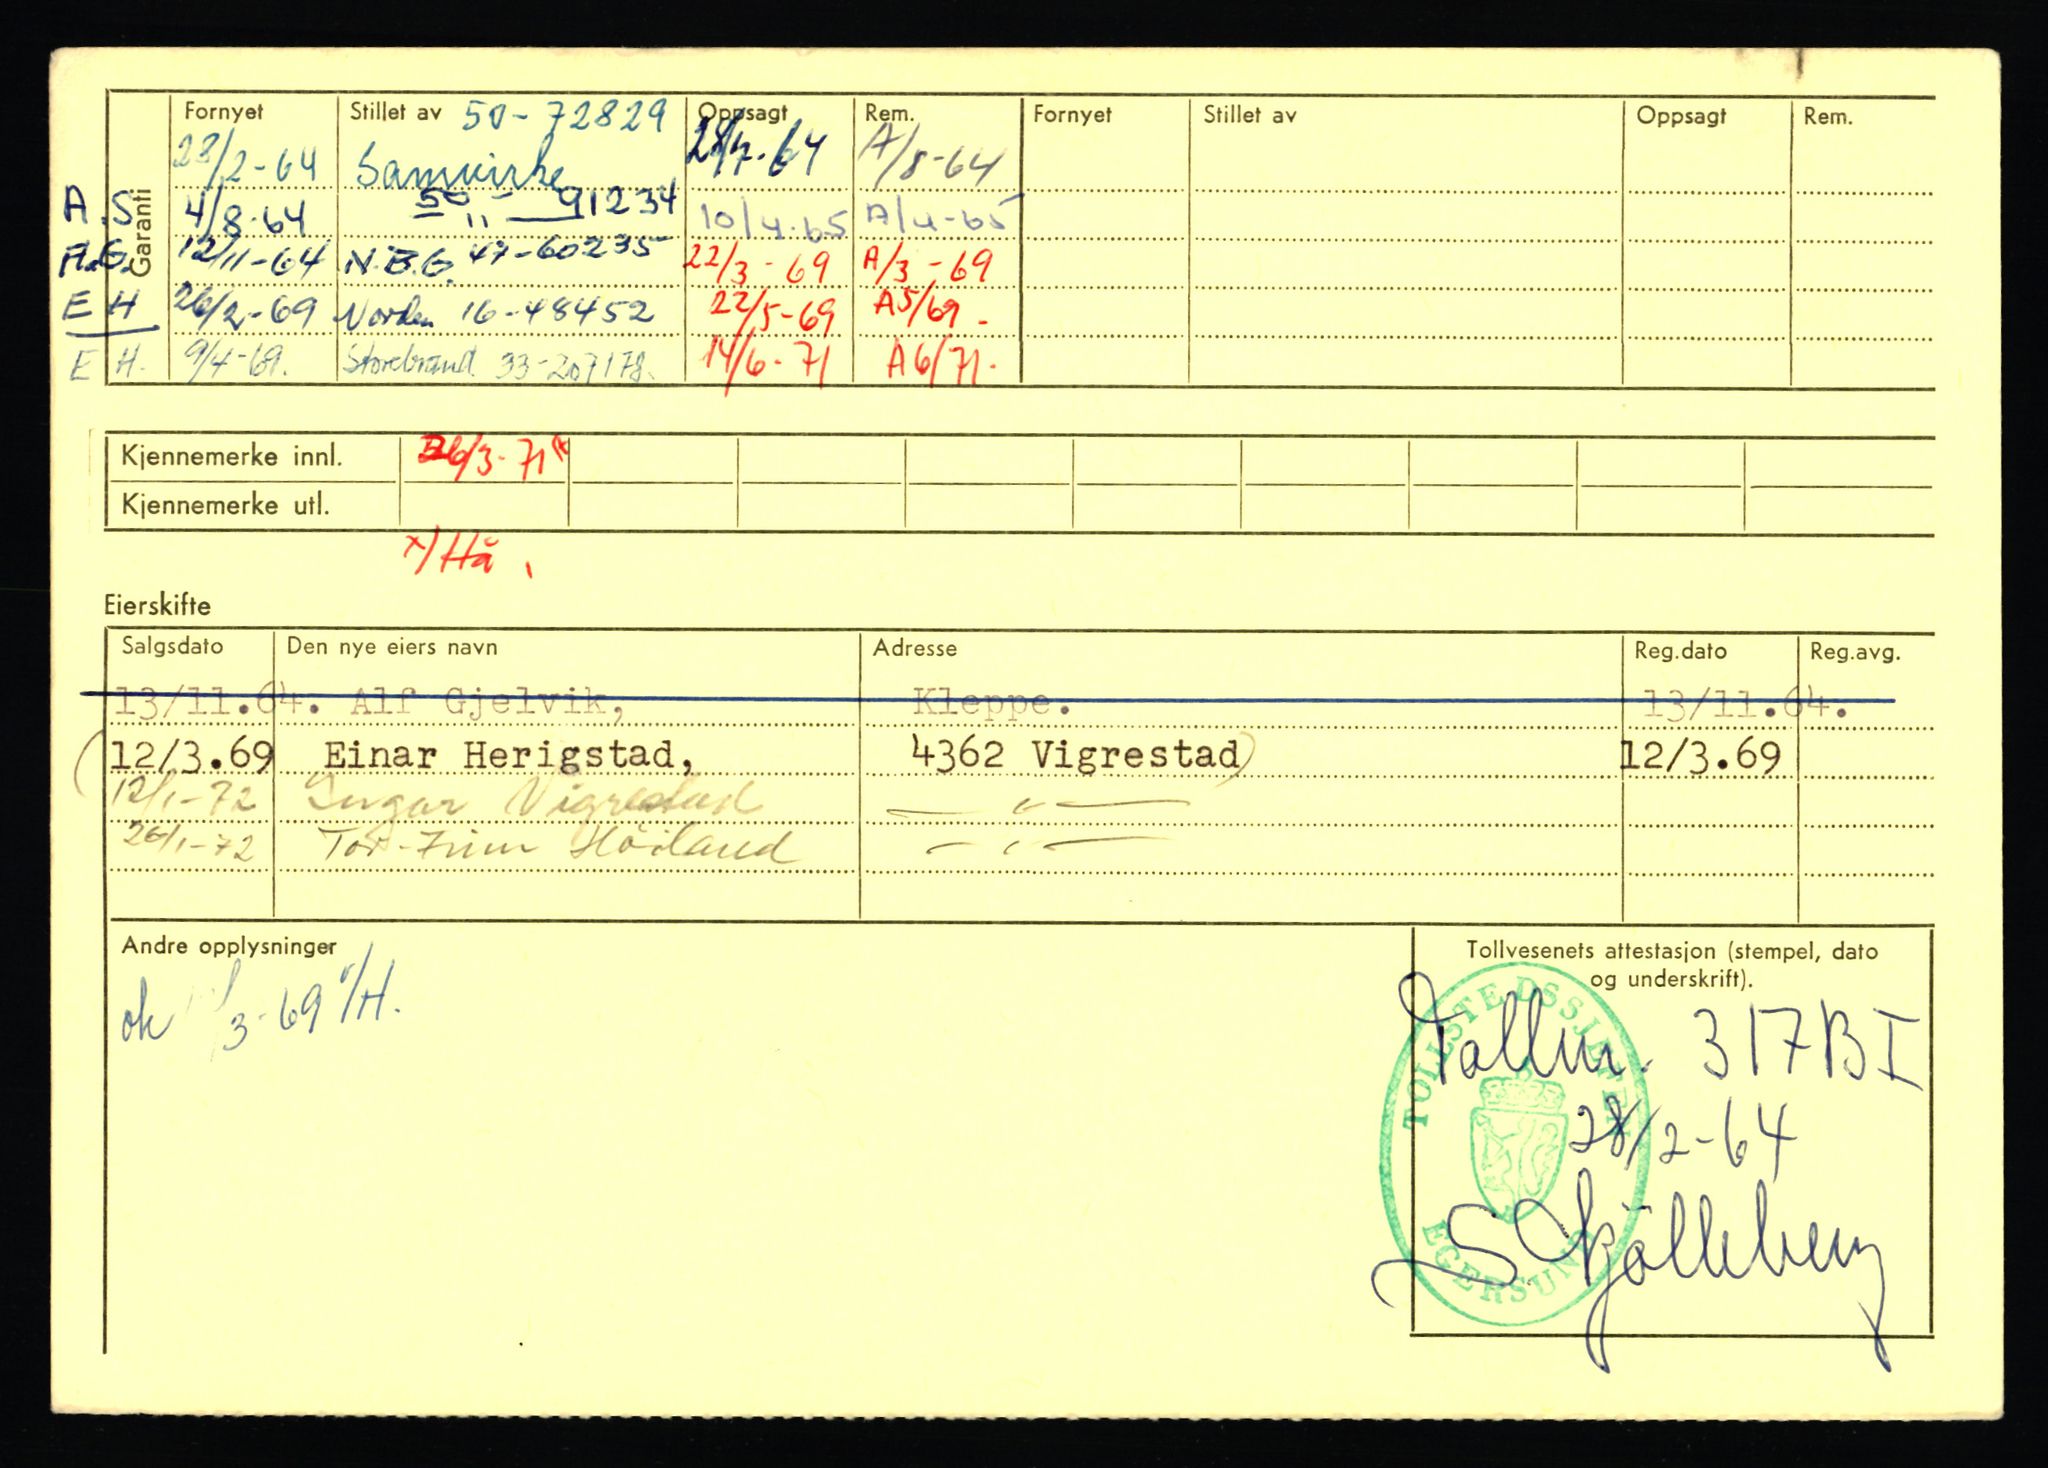 Garanti
Fornyet Stillet av 50-72829 Oppsagt Rem. Fornyet Stillet av Oppsagt Rem.
28/2-64 Samvirke 28/7-64 A/8-64
A.S. 4/8-64 50 - " - 91234 10/4-65 A/4-65
A.G. 12/11-64 N.B.G. 47-60235 22/3-69 A/3-69
E H 26/2-69 Norden 16-48452 22/5-69 A5/69.
E H. 9/4-69. Storebrand 33-207178. 14/6-71 A6/71.
Kjennemerke innl. 26/3-71 x
Kjennemerke utl.
x/ Hå.
Eierskifte
Salgsdato Den nye eiers navn Adresse Reg.dato Reg.avg.
13/11.64. Alf Gjelvik, Kleppe. 13/11.64.
(12/3.69 Einar Herigstad, 4362 Vigrestad) 12/3.69
12/1-72 Ingar Vigrestad — " —
26/1-72 Tor-Finn Höiland — " —
Andre opplysninger
ok /3-69 /H.
Tollvesenets attestasjon (stempel, dato
og underskrift).
TOLLSTEDSSJEFEN
EGERSUND
Tollnr. 317 B I
28/2-64